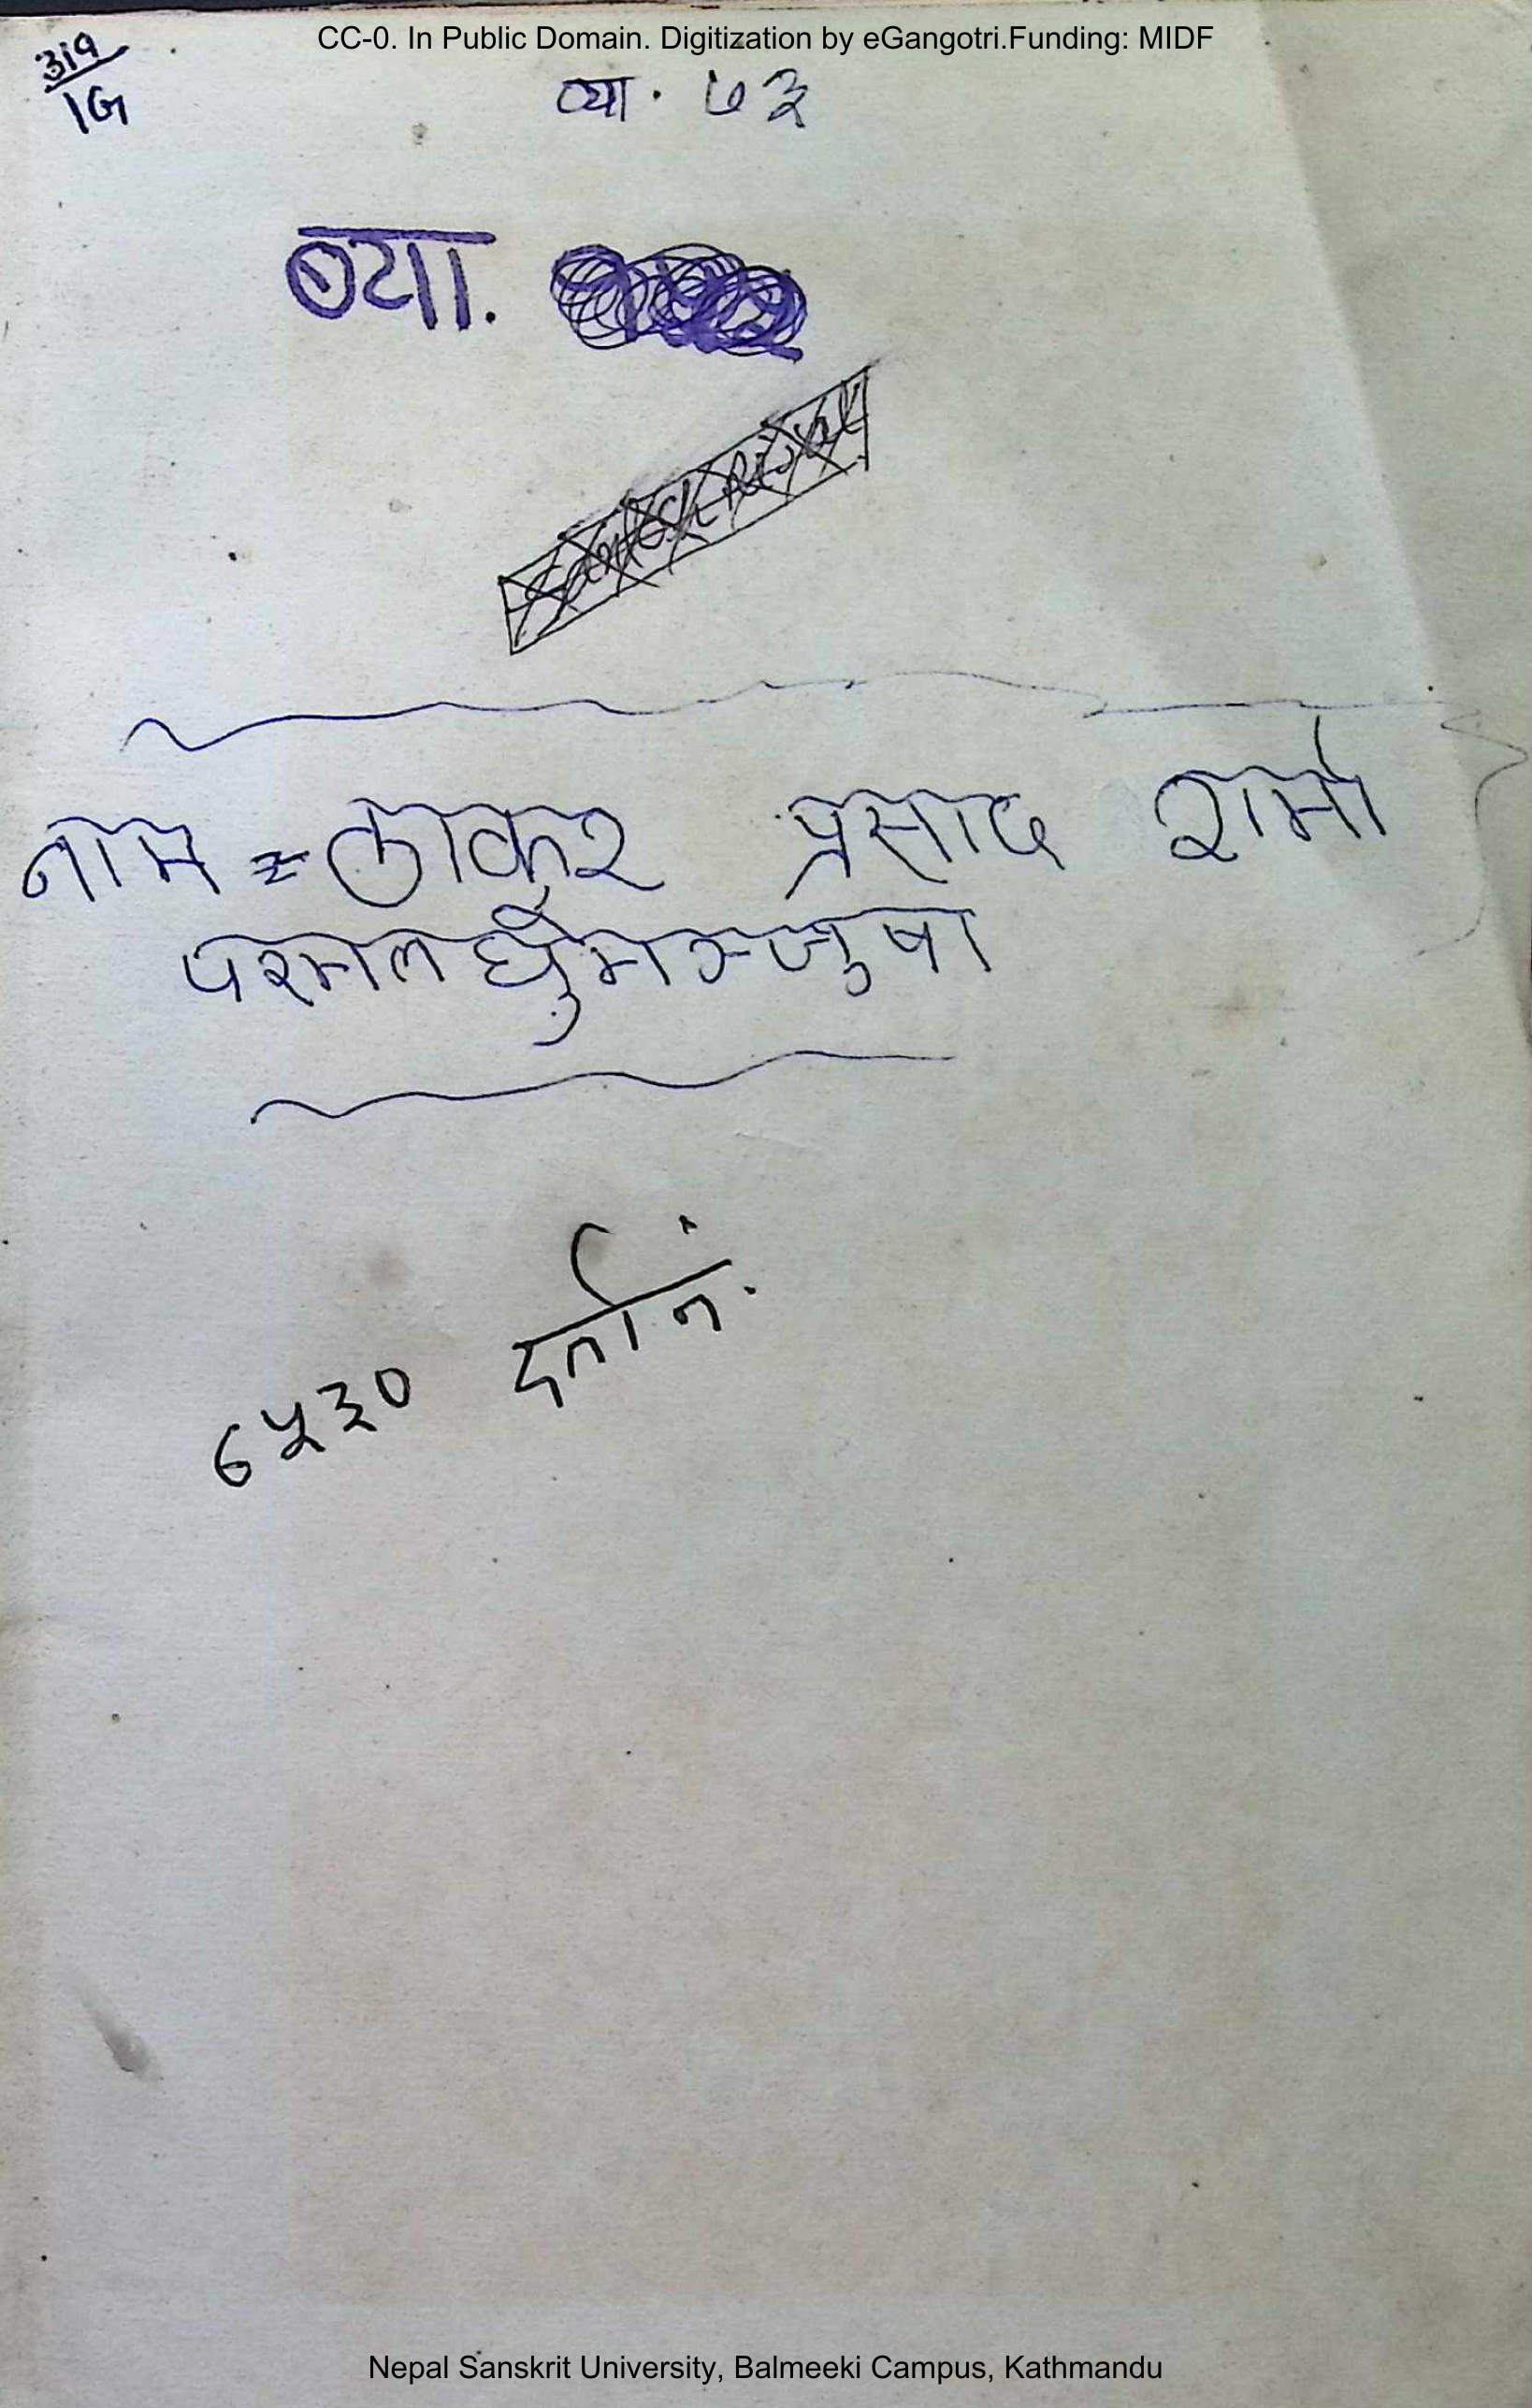 CC-0. In Public Domain. Digitization by eGangotri.Funding: MIDF
319
1G
व्या. ७३
व्या.
नाम = ठाकुर प्रसाद शर्मा
परमलघुमञ्जुषा
दर्ता नं.
७५३०
Nepal Sanskrit University, Balmeeki Campus, Kathmandu